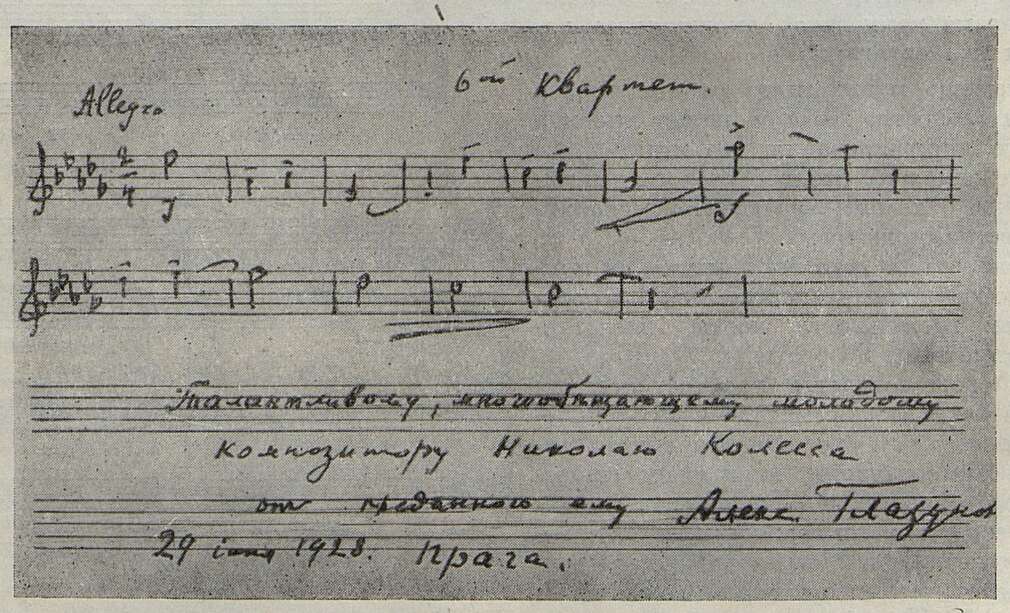 6ой Квартет.
Allegro
2/4
Талантливому, многообещающему молодому
композитору Николаю Колесса
от преданного ему Алекс. Глазунов
29 iюня 1928. Прага.